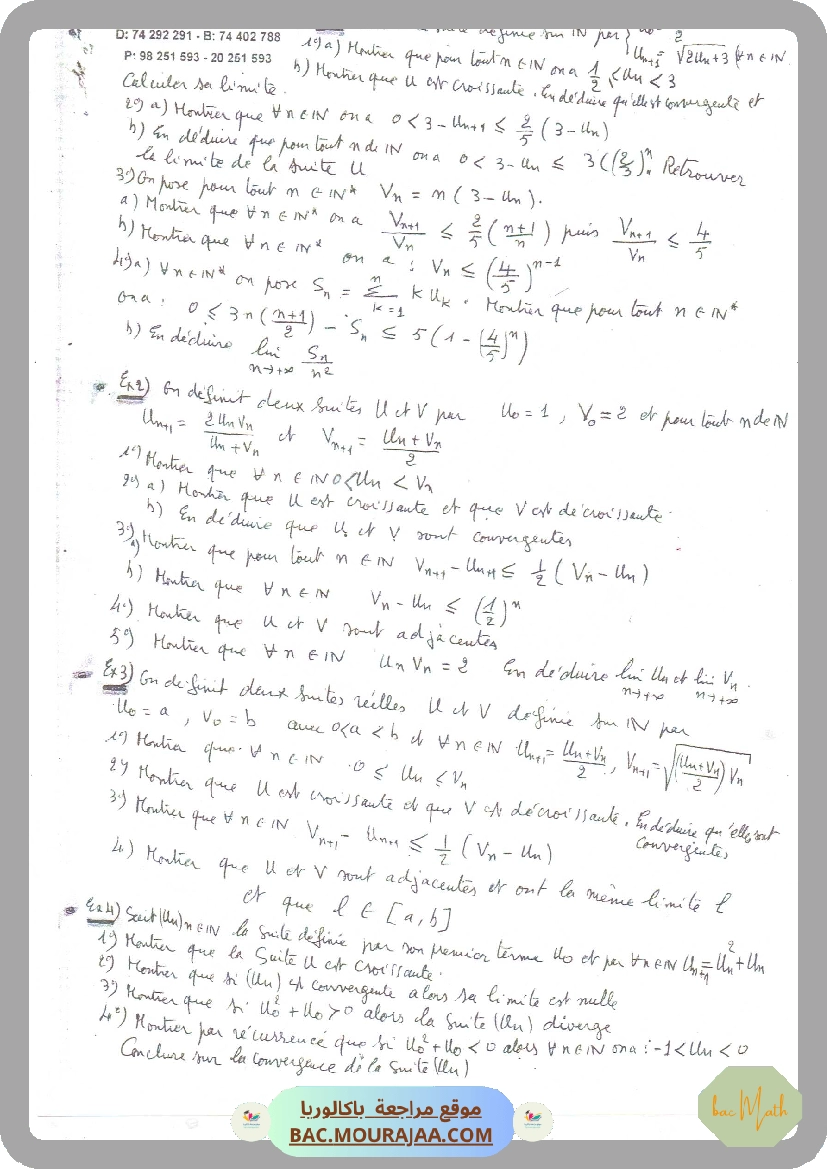 D: 74 292 291 - B: 74 402 788
P: 98 251 593 - 20 251 593
suite définie sur IN par { U₀ = 1/2 ; Uₙ₊₁ = √(2Uₙ+3) (∀n∈IN
1°) a) Montrer que pour tout n ∈ IN on a 1/2 ≤ Uₙ < 3
b) Montrer que U est croissante. En déduire qu'elle est convergente et
Calculer sa limite.
2°) a) Montrer que ∀n∈IN on a 0 < 3 - Uₙ₊₁ ≤ 2/5 (3 - Uₙ)
b) En déduire que pour tout n de IN on a 0 < 3 - Uₙ ≤ 3 (2/5)ⁿ. Retrouver
la limite de la suite U
3°) On pose pour tout n ∈ IN* Vₙ = n (3 - Uₙ).
a) Montrer que ∀n∈IN* on a Vₙ₊₁/Vₙ ≤ 2/5 (n+1/n) puis Vₙ₊₁/Vₙ ≤ 4/5
b) Montrer que ∀n∈IN* on a : Vₙ ≤ (4/5)ⁿ⁻¹
4°) a) ∀n∈IN* on pose Sₙ = Σ_{k=1}^{n} k Uₖ. Montrer que pour tout n ∈ IN*
on a : 0 ≤ 3n (n+1/2) - Sₙ ≤ 5 (1 - (4/5)ⁿ)
b) En déduire lim_{n→+∞} Sₙ/n²
Ex2) On définit deux suites U et V par U₀ = 1, V₀ = 2 et pour tout n de IN
Uₙ₊₁ = 2UₙVₙ/(Uₙ+Vₙ) et Vₙ₊₁ = (Uₙ + Vₙ)/2
1°) Montrer que ∀ n ∈ IN 0 < Uₙ < Vₙ
2°) a) Montrer que U est croissante et que V est décroissante.
b) En déduire que U et V sont convergentes
3°) a) Montrer que pour tout n ∈ IN Vₙ₊₁ - Uₙ₊₁ ≤ 1/2 (Vₙ - Uₙ)
b) Montrer que ∀ n ∈ IN Vₙ - Uₙ ≤ (1/2)ⁿ
4°) Montrer que U et V sont adjacentes
5°) Montrer que ∀ n ∈ IN UₙVₙ = 2 En déduire lim_{n→+∞} Uₙ et lim_{n→+∞} Vₙ.
Ex3) On définit deux suites réelles U et V définie sur IN par
U₀ = a, V₀ = b avec 0<a<b et ∀n∈IN Uₙ₊₁ = (Uₙ+Vₙ)/2, Vₙ₊₁ = √(((Uₙ+Vₙ)/2) Vₙ)
1°) Montrer que ∀n∈IN 0 ≤ Uₙ ≤ Vₙ
2°) Montrer que U est croissante et que V est décroissante. En déduire qu'elles sont
convergentes
3°) Montrer que ∀n∈IN Vₙ₊₁ - Uₙ₊₁ ≤ 1/2 (Vₙ - Uₙ)
4) Montrer que U et V sont adjacentes et ont la même limite l
et que l ∈ [a,b]
Ex4) Soit (Uₙ)n∈IN la suite définie par son premier terme U₀ et par ∀n∈IN Uₙ₊₁ = Uₙ² + Uₙ
1°) Montrer que la Suite U est croissante.
2°) Montrer que si (Uₙ) est convergente alors sa limite est nulle
3°) Montrer que si U₀² + U₀ > 0 alors la suite (Uₙ) diverge
4°) Montrer par récurrence que si U₀² + U₀ < 0 alors ∀n∈IN on a : -1 < Uₙ < 0
Conclure sur la convergence de la suite (Uₙ)
موقع مراجعة باكالوريا
BAC.MOURAJAA.COM
bac Math